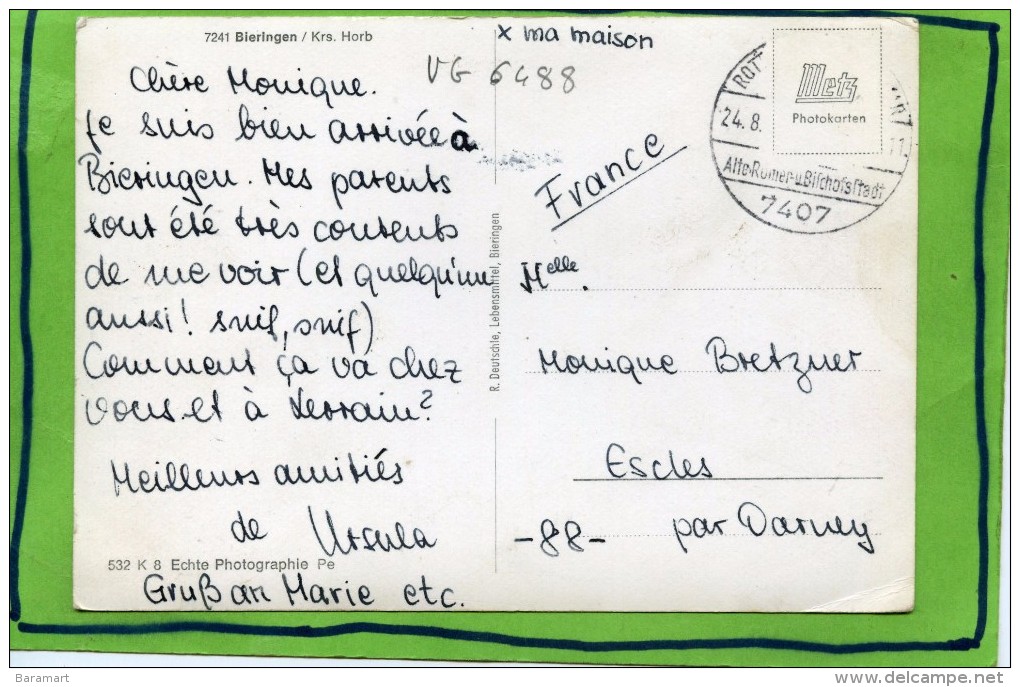 7241 Bieringen / Krs. Horb
x ma maison
VG 6488
Chère Monique.
Je suis bien arrivée à
Bieringen. Mes parents
sont été très contents
de me voir (et quelqu'un
aussi! snif, snif)
Comment ça va chez
vous et à Serrain?
Meilleurs amitiés
de Ursula
532 K 8 Echte Photographie Pe
Gruß an Marie etc.
R. Deutschle, Lebensmittel, Bieringen
Metz
Photokarten
ROT
24. 8.
11.
Alte Römer- u. Bischofsstadt
7407
France
Melle.
Monique Bretzner
Escles
-88- par Darney
Baramart
delcampe.net